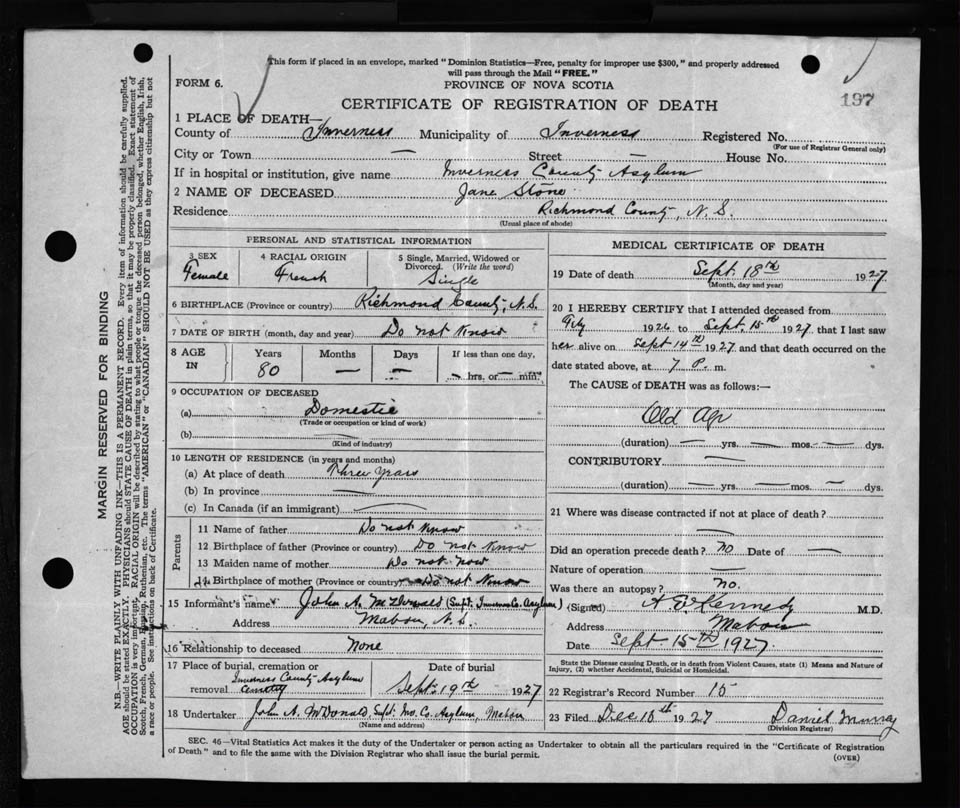 This form if placed in an envelope, marked "Dominion Statistics—Free, penalty for improper use $300," and properly addressed
will pass through the Mail "FREE."
FORM 6.
PROVINCE OF NOVA SCOTIA
197
CERTIFICATE OF REGISTRATION OF DEATH
1 PLACE OF DEATH—
County of Inverness Municipality of Inverness Registered No.
(For use of Registrar General only)
City or Town — Street — House No.
If in hospital or institution, give name Inverness County Asylum
2 NAME OF DECEASED Jane Stone
Residence Richmond County, N.S.
(Usual place of abode)
PERSONAL AND STATISTICAL INFORMATION
3 SEX 4 RACIAL ORIGIN 5 Single, Married, Widowed or
Divorced. (Write the word)
Female French Single
6 BIRTHPLACE (Province or country) Richmond County, N.S.
7 DATE OF BIRTH (month, day and year) Do not Know
8 AGE IN Years Months Days If less than one day,
80 — — — hrs. or — min.
9 OCCUPATION OF DECEASED
(a) Domestic
(Trade or occupation or kind of work)
(b) —
(Kind of industry)
10 LENGTH OF RESIDENCE (in years and months)
(a) At place of death Three years
(b) In province —
(c) In Canada (if an immigrant) —
Parents
11 Name of father Do not Know
12 Birthplace of father (Province or country) Do not Know
13 Maiden name of mother Do not now
14 Birthplace of mother (Province or country) Do not Know
15 Informant's name John A. McDonald (Supt. Inverness Co. Asylum)
Address Mabou, N.S.
16 Relationship to deceased None
17 Place of burial, cremation or Date of burial
removal Inverness County Asylum
Cemetery Sept. 19th 1927
18 Undertaker John A. McDonald, Supt. Inv. Co. Asylum Mabou
(Name and address)
MEDICAL CERTIFICATE OF DEATH
19 Date of death Sept. 18th 1927
(Month, day and year)
20 I HEREBY CERTIFY that I attended deceased from
1926 to Sept. 15th 1927, that I last saw
her alive on Sept 14th 1927 and that death occurred on the
date stated above, at 7 P. m.
The CAUSE of DEATH was as follows:—
Old Age
(duration) — yrs. — mos. — dys.
CONTRIBUTORY —
(duration) — yrs. — mos. — dys.
21 Where was disease contracted if not at place of death?
—
Did an operation precede death? no Date of —
Nature of operation —
Was there an autopsy? no.
(Signed) Kennedy M.D.
Address Mabou
Date Sept 15th 1927
State the Disease causing Death, or in death from Violent Causes, state (1) Means and Nature of
Injury, (2) whether Accidental, Suicidal or Homicidal.
22 Registrar's Record Number 15
23 Filed Dec 1927 Daniel Murray
(Division Registrar)
SEC. 46—Vital Statistics Act makes it the duty of the Undertaker or person acting as Undertaker to obtain all the particulars required in the "Certificate of Registration
of Death" and to file the same with the Division Registrar who shall issue the burial permit.
(OVER)
MARGIN RESERVED FOR BINDING
N.B.—WRITE PLAINLY WITH UNFADING INK—THIS IS A PERMANENT RECORD. Every item of information should be carefully supplied.
AGE should be stated EXACTLY. PHYSICIANS should STATE CAUSE OF DEATH in plain terms, so that it may be properly classified. Exact statement of
OCCUPATION is very important. RACIAL ORIGIN will be described by stating to what people or tongue the deceased person belonged, whether English, Irish,
Scotch, French, German, Russian, Ruthenian, etc. The terms "AMERICAN" or "CANADIAN" SHOULD NOT BE USED as they express citizenship but not
a race or people. See instructions on back of Certificate.